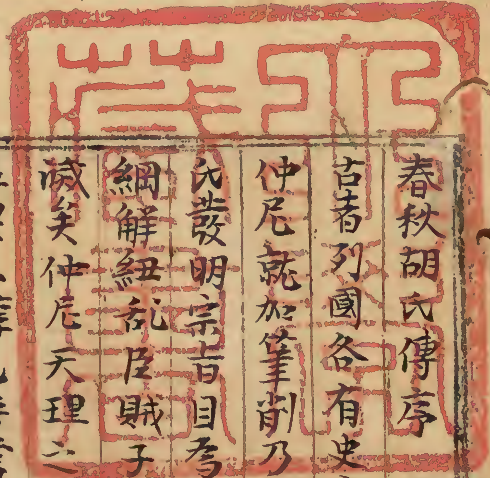 春秋胡氏傳序
古者列國各有史
仲尼就加筆削乃
氏發明宗旨目爲
綱解紐乱臣賊子
滅矣仲尼天理之